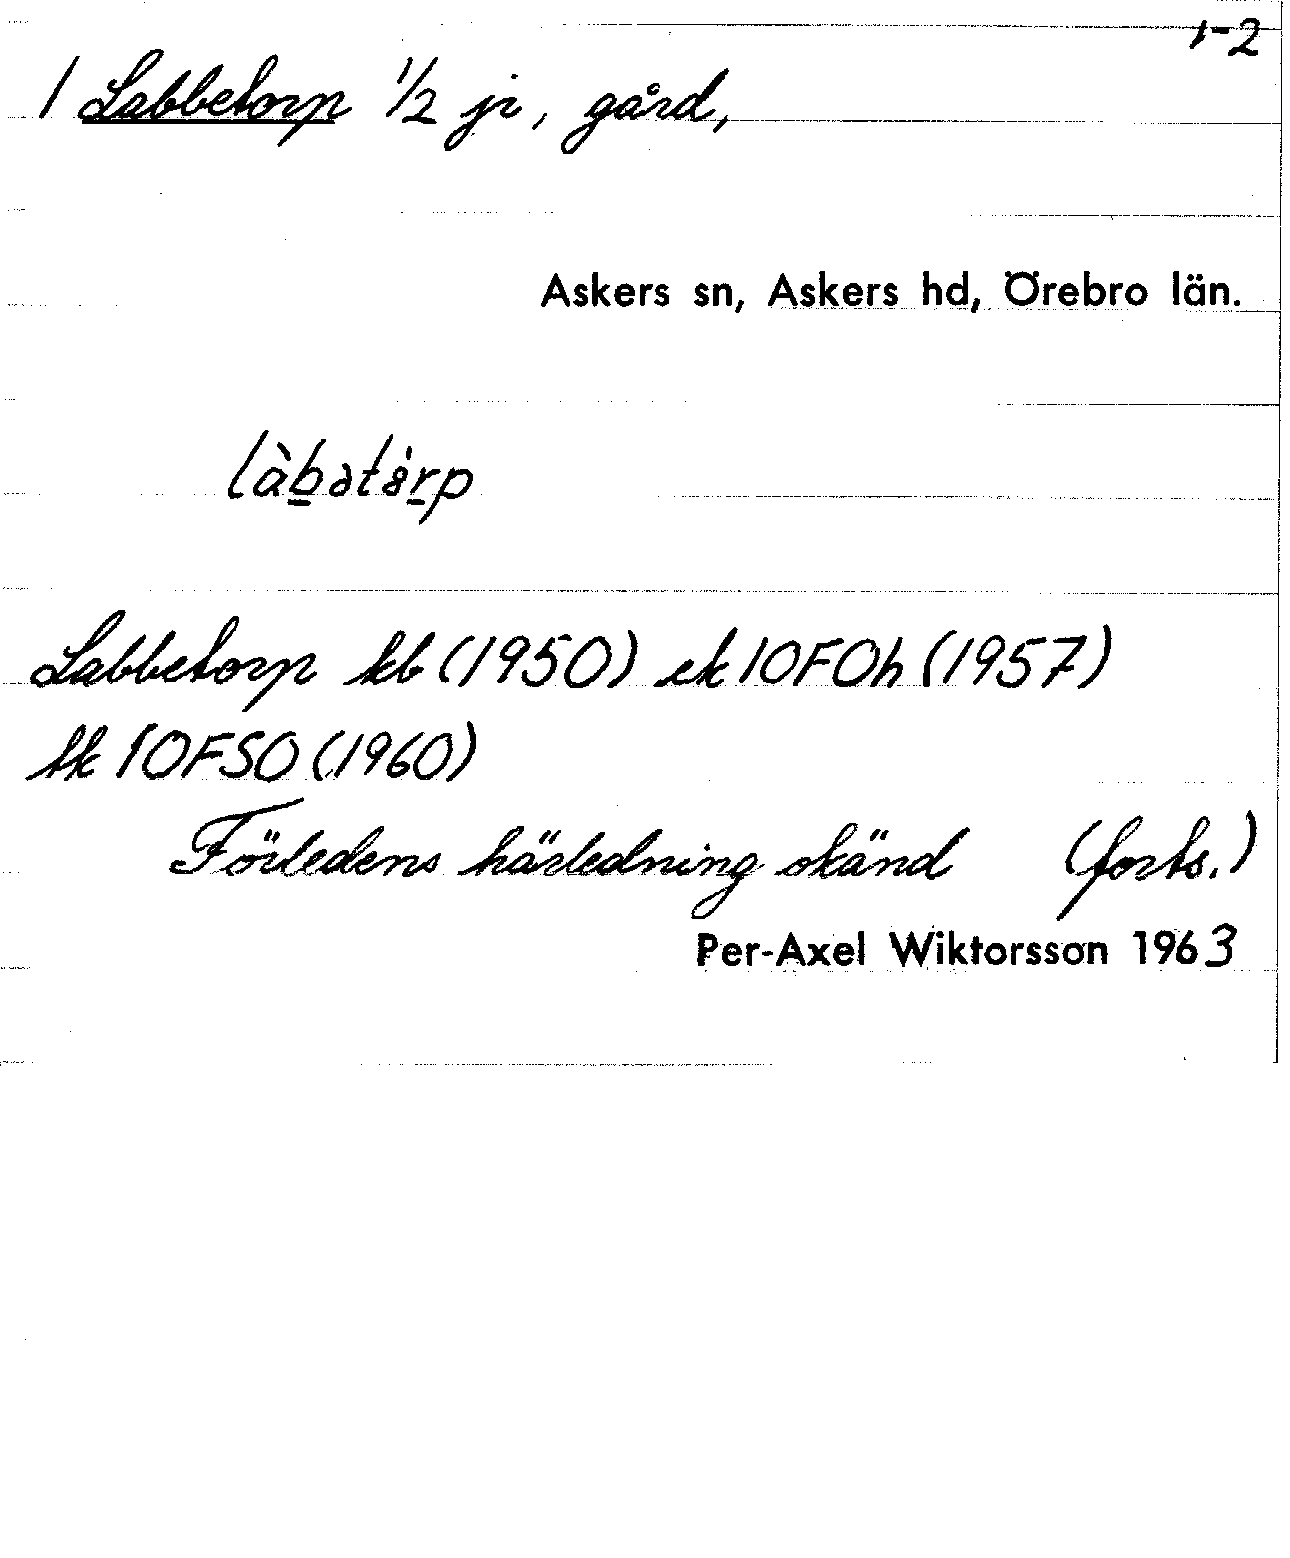 1-2
1 Labbetorp 1/2 jr, gård,
Askers sn, Askers hd, Örebro län.
Labbetorp kb (1950) ek 10F0h (1957)
tk 10FSO (1960)
Förledens härledning okänd (forts.)
Per-Axel Wiktorsson 1963